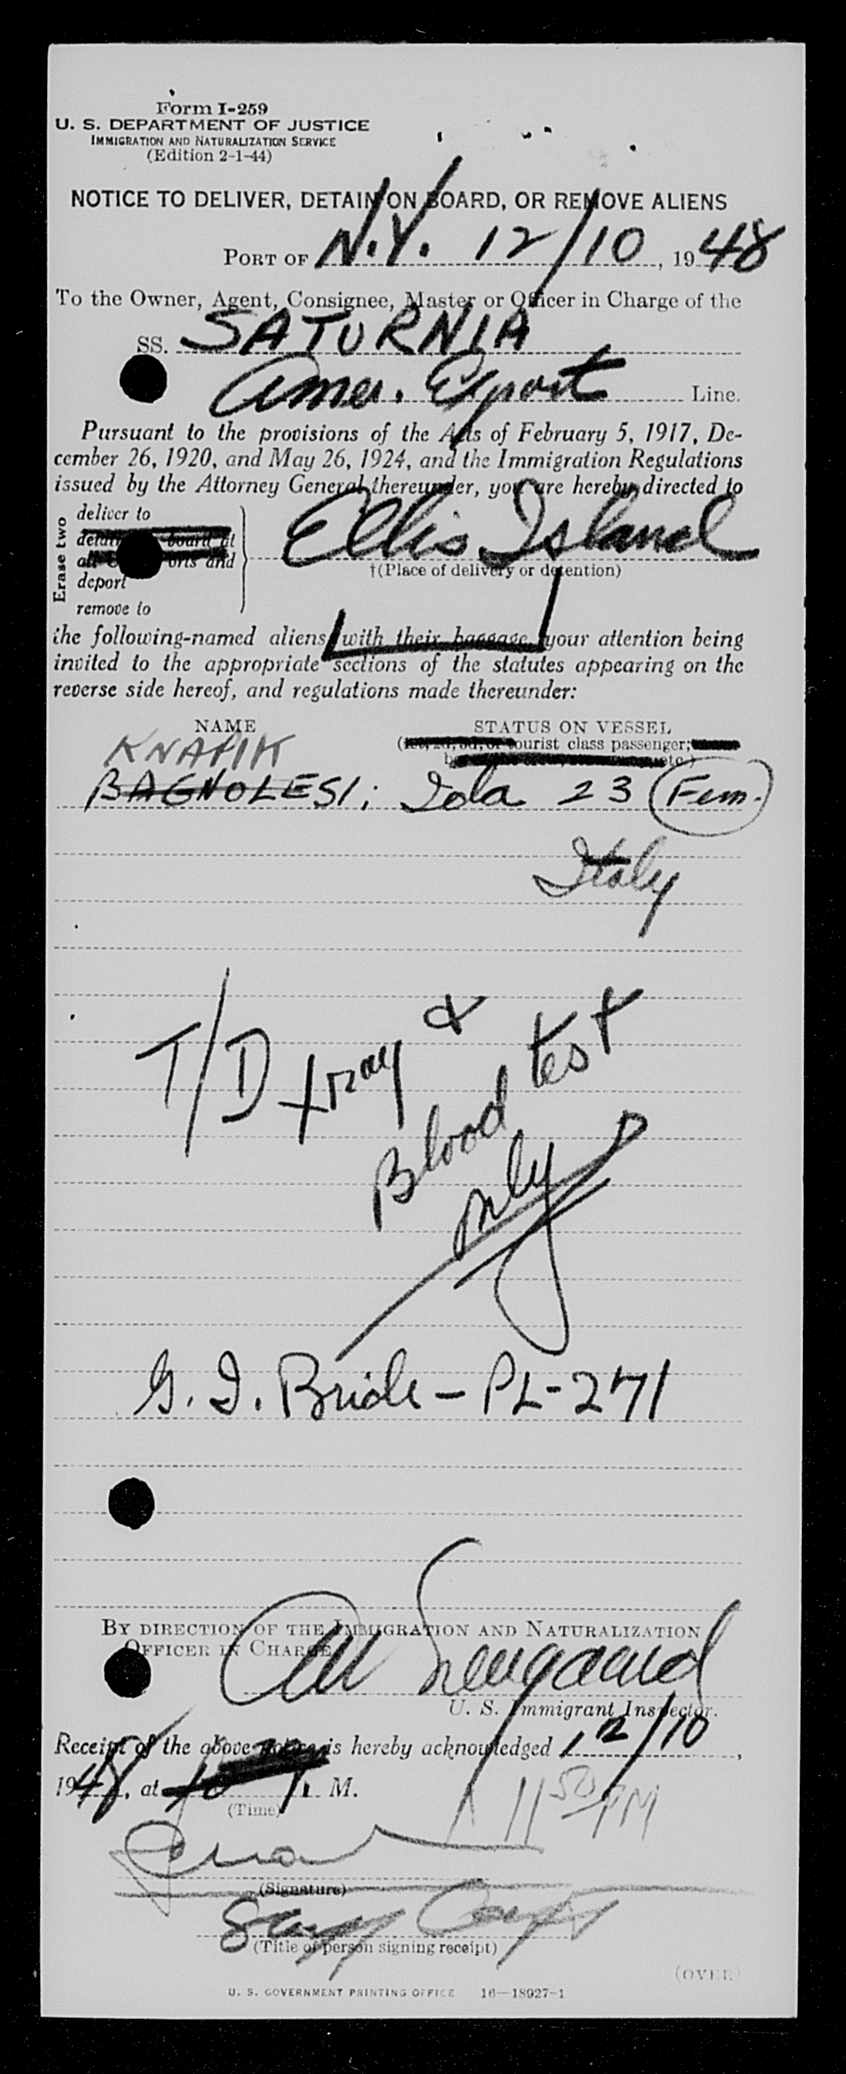 Form I-259
U. S. DEPARTMENT OF JUSTICE
IMMIGRATION AND NATURALIZATION SERVICE
(Edition 2-1-44)
NOTICE TO DELIVER, DETAIN ON BOARD, OR REMOVE ALIENS
PORT OF N.Y. 12/10, 1948
To the Owner, Agent, Consignee, Master or Officer in Charge of the
SS. SATURNIA
Amer. Export Line.
Pursuant to the provisions of the Acts of February 5, 1917, De-
cember 26, 1920, and May 26, 1924, and the Immigration Regulations
issued by the Attorney General thereunder, you are hereby directed to
Erase two
deliver to
detain board at
all ports and
deport
remove to
Ellis Island
†(Place of delivery or detention)
the following-named aliens with their baggage your attention being
invited to the appropriate sections of the statutes appearing on the
reverse side hereof, and regulations made thereunder:
NAME STATUS ON VESSEL
KNAPIK tourist class passenger;
BAGNOLESI; Iola 23 Fem.
Italy
T/D xray &
Blood test
only
G. I. Bride - PL-271
BY DIRECTION OF THE IMMIGRATION AND NATURALIZATION
OFFICER IN CHARGE
U. S. Immigrant Inspector.
Receipt of the above notice is hereby acknowledged 12/10,
1948, at 10 M.
(Time) 11 50 PM
(Signature)
(Title of person signing receipt)
(OVER)
U. S. GOVERNMENT PRINTING OFFICE 16—18927-1